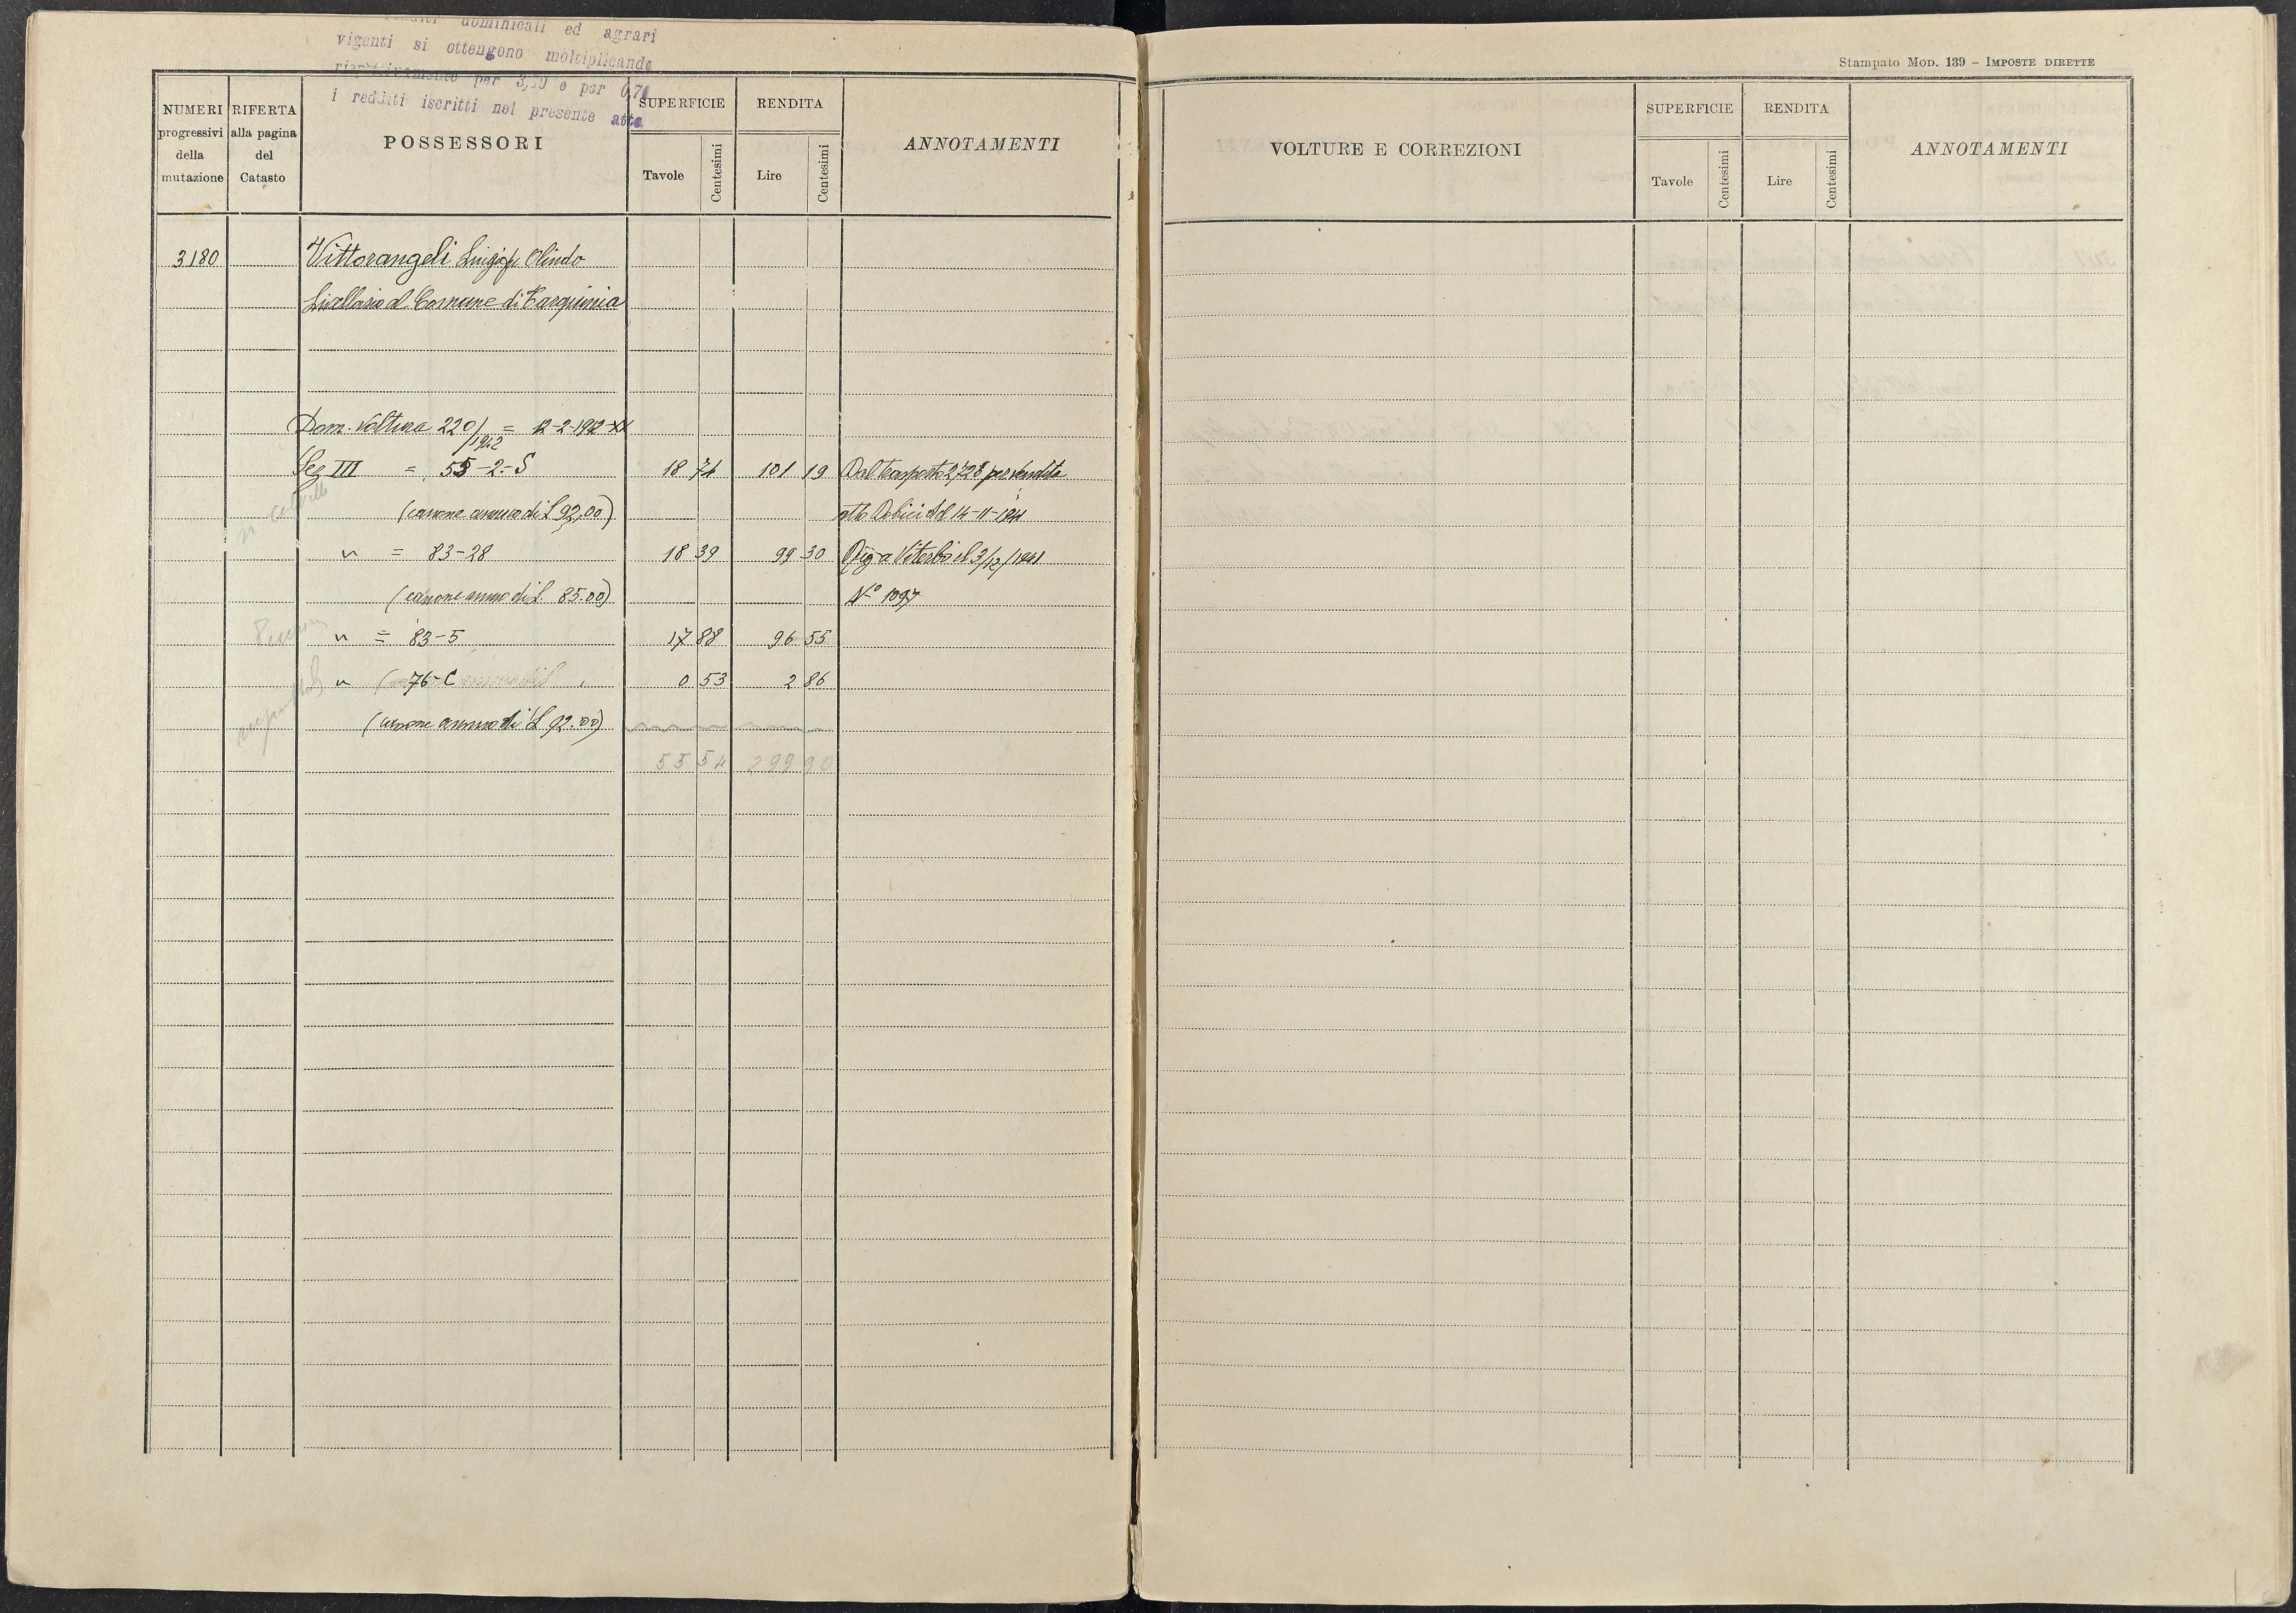 redditi dominicali ed agrari
vigenti si ottengono moltiplicando
rispettivamente per 3,50 e per 0,70
i redditi iscritti nel presente atto
NUMERI progressivi della mutazione
RIFERTA alla pagina del Catasto
POSSESSORI
SUPERFICIE
Tavole Centesimi
RENDITA
Lire Centesimi
ANNOTAMENTI
3180 Vittorangeli Luigi fu Olindo
Livellario al Comune di Tarquinia
Dom. Voltura 220/1942 = 12-2-1942-XX
Sez III = 55-2-S 18 74 101 19 Dal trasporto 2728 per vendita
(canone annuo di L 92,00) atto Dobici del 14-11-1941
" = 83-28 18 39 99 30 Reg a Viterbo il 3/12/1941
(canone annuo di L. 85.00) N° 1097
" = 83-5 17 88 96 55
" 76-C 0 53 2 86
(canone annuo di L 92.00)
55 54 299 90
Stampato Mod. 139 - IMPOSTE DIRETTE
VOLTURE E CORREZIONI
SUPERFICIE
Tavole Centesimi
RENDITA
Lire Centesimi
ANNOTAMENTI